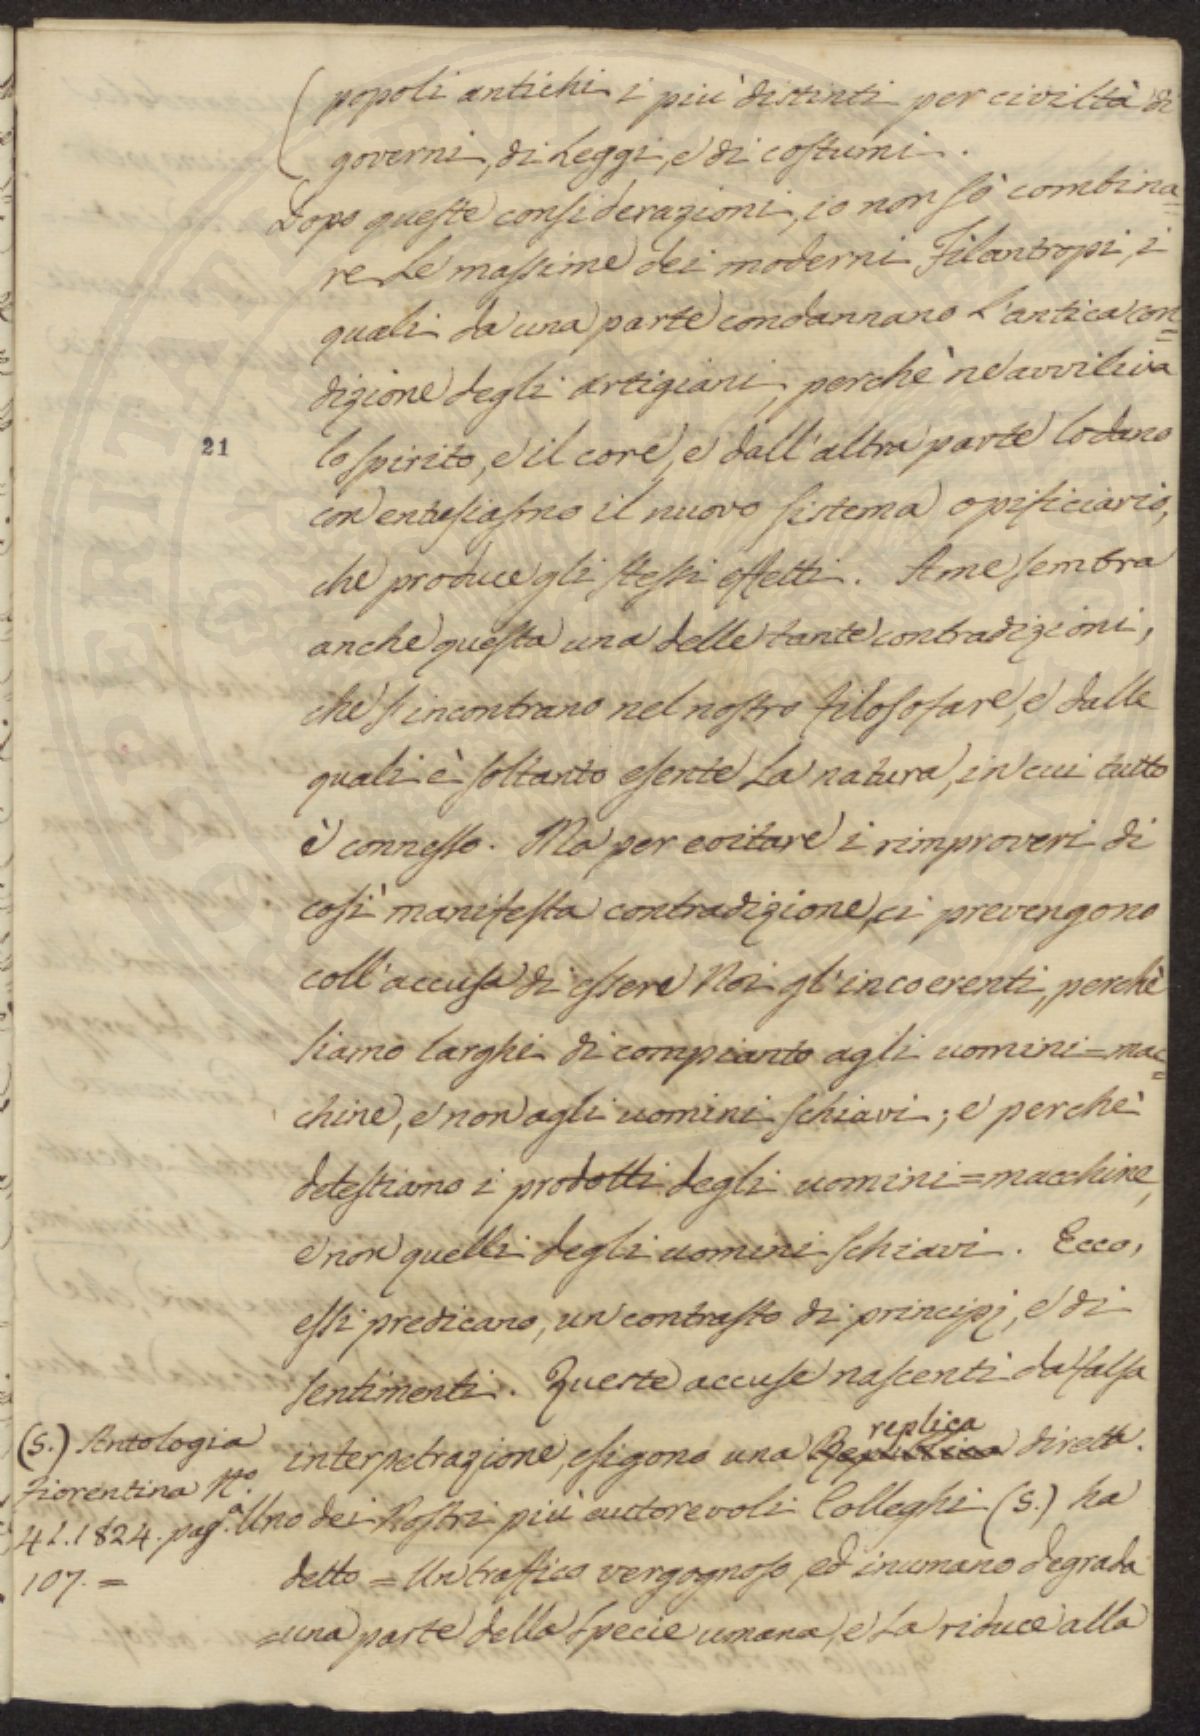 popoli antichi i più distinti per civiltà di
governi, di Leggi, e di costumi.
Dopo queste considerazioni, io non sò combina=
re Le massime dei moderni Filantropi, i
quali da una parte condannano L'antica con=
dizione degli artigiani, perchè ne avviliva
21
lo spirito, e il core, e dall'altra parte lodano
con entusiasmo il nuovo sistema opificiario,
che produce gli stessi effetti. A me sembra
anche questa una delle tante contradizioni,
che s'incontrano nel nostro filosofare, e dalle
quali è soltanto esente La natura, in cui tutto
è connesso. Ma per evitare i rimproveri di
così manifesta contradizione, ci prevengono
coll'accusa di essere Noi gl'incoerenti, perchè
siamo larghi di compianto agli uomini=mac=
chine, e non agli uomini schiavi; e perchè
detestiamo i prodotti degli uomini=macchine,
e non quelli degli uomini schiavi. Ecco,
essi predicano, un contrasto di principj, e di
sentimenti. Queste accuse nascenti da falsa
replica
interpetrazione, esigono una diretta.
(S.) Antologia
Fiorentina N.o
41. 1824. pag.a
107. =
Uno dei Nostri più autorevoli Colleghi (S.) ha
detto = Un traffico vergognoso, ed inumano degrada
=una parte della Specie umana, e La riduce alla
PERITA
PUBLI